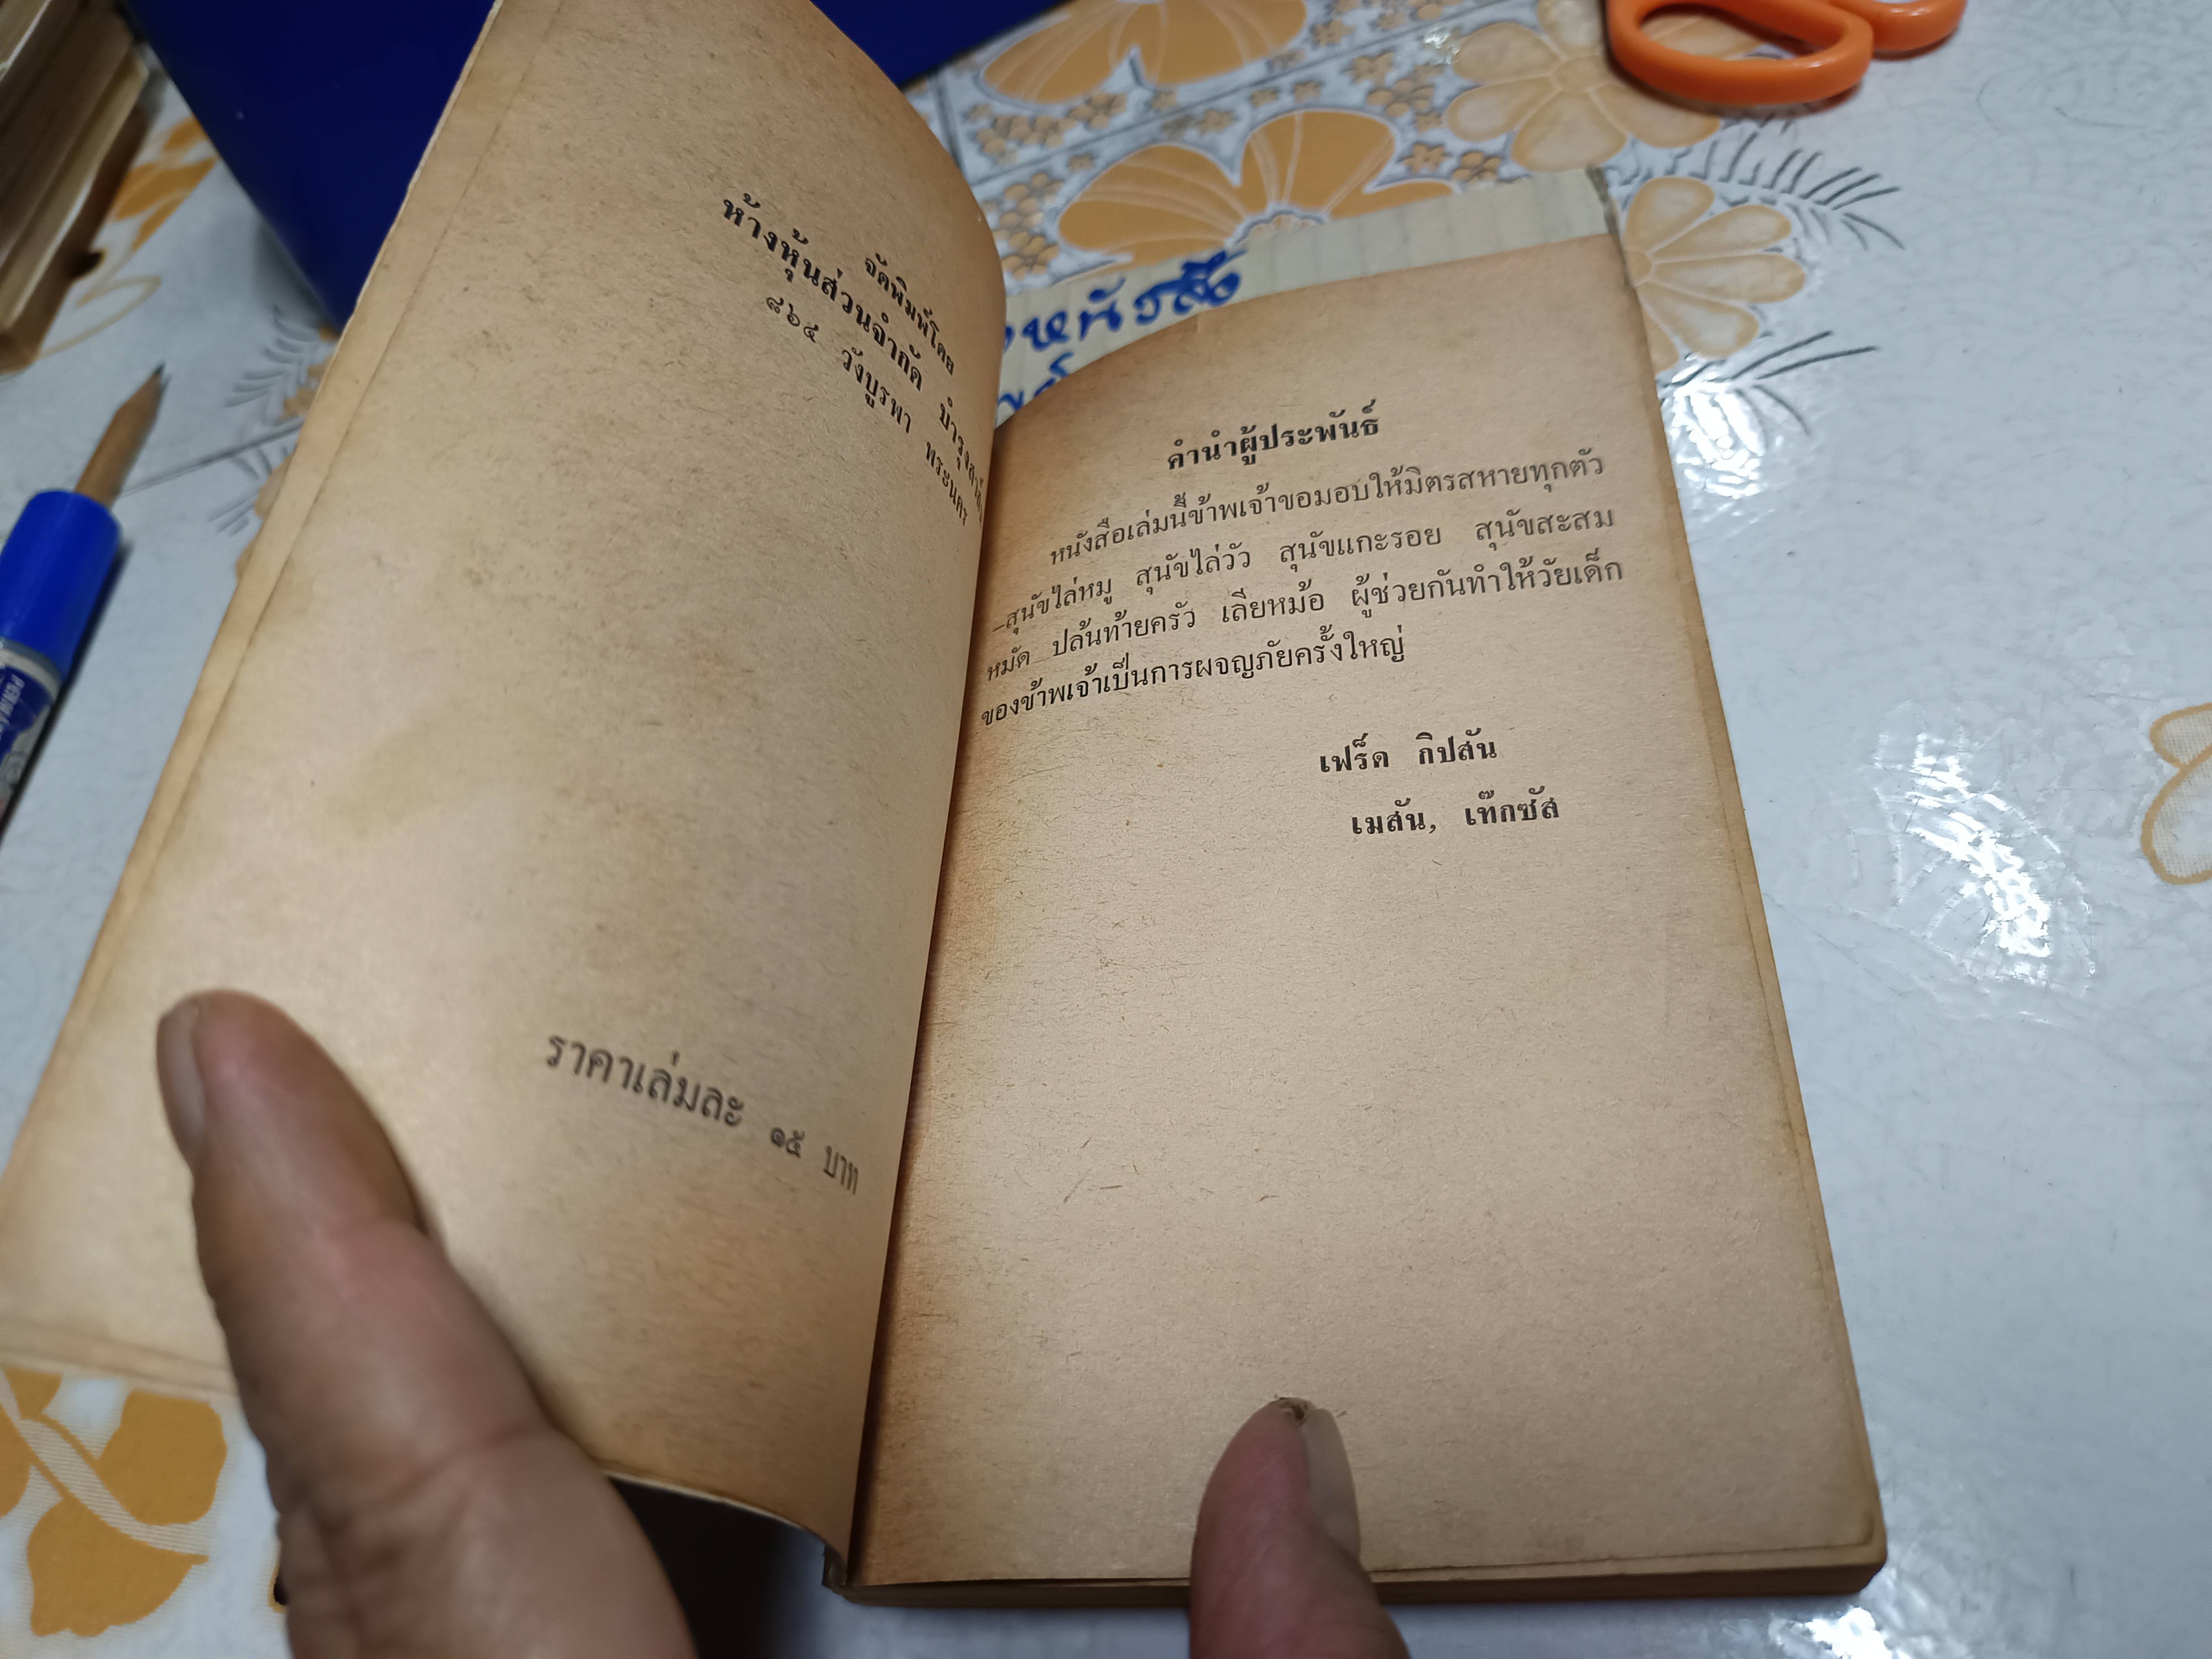 จัดพิมพ์โดย
ห้างหุ้นส่วนจำกัด บำรุงสาส์น
๘๖๕ วังบูรพา พระนคร
ราคาเล่มละ ๑๕ บาท
หนังสือ
คำนำผู้ประพันธ์
หนังสือเล่มนี้ข้าพเจ้าขอมอบให้มิตรสหายทุกตัว
–สุนัขไล่หมู สุนัขไล่วัว สุนัขแกะรอย สุนัขสะสม
หมัด ปล้นท้ายครัว เลียหม้อ ผู้ช่วยกันทำให้วัยเด็ก
ของข้าพเจ้าเป็นการผจญภัยครั้งใหญ่
เฟร็ด กิปสัน
เมสัน, เท๊กซัส